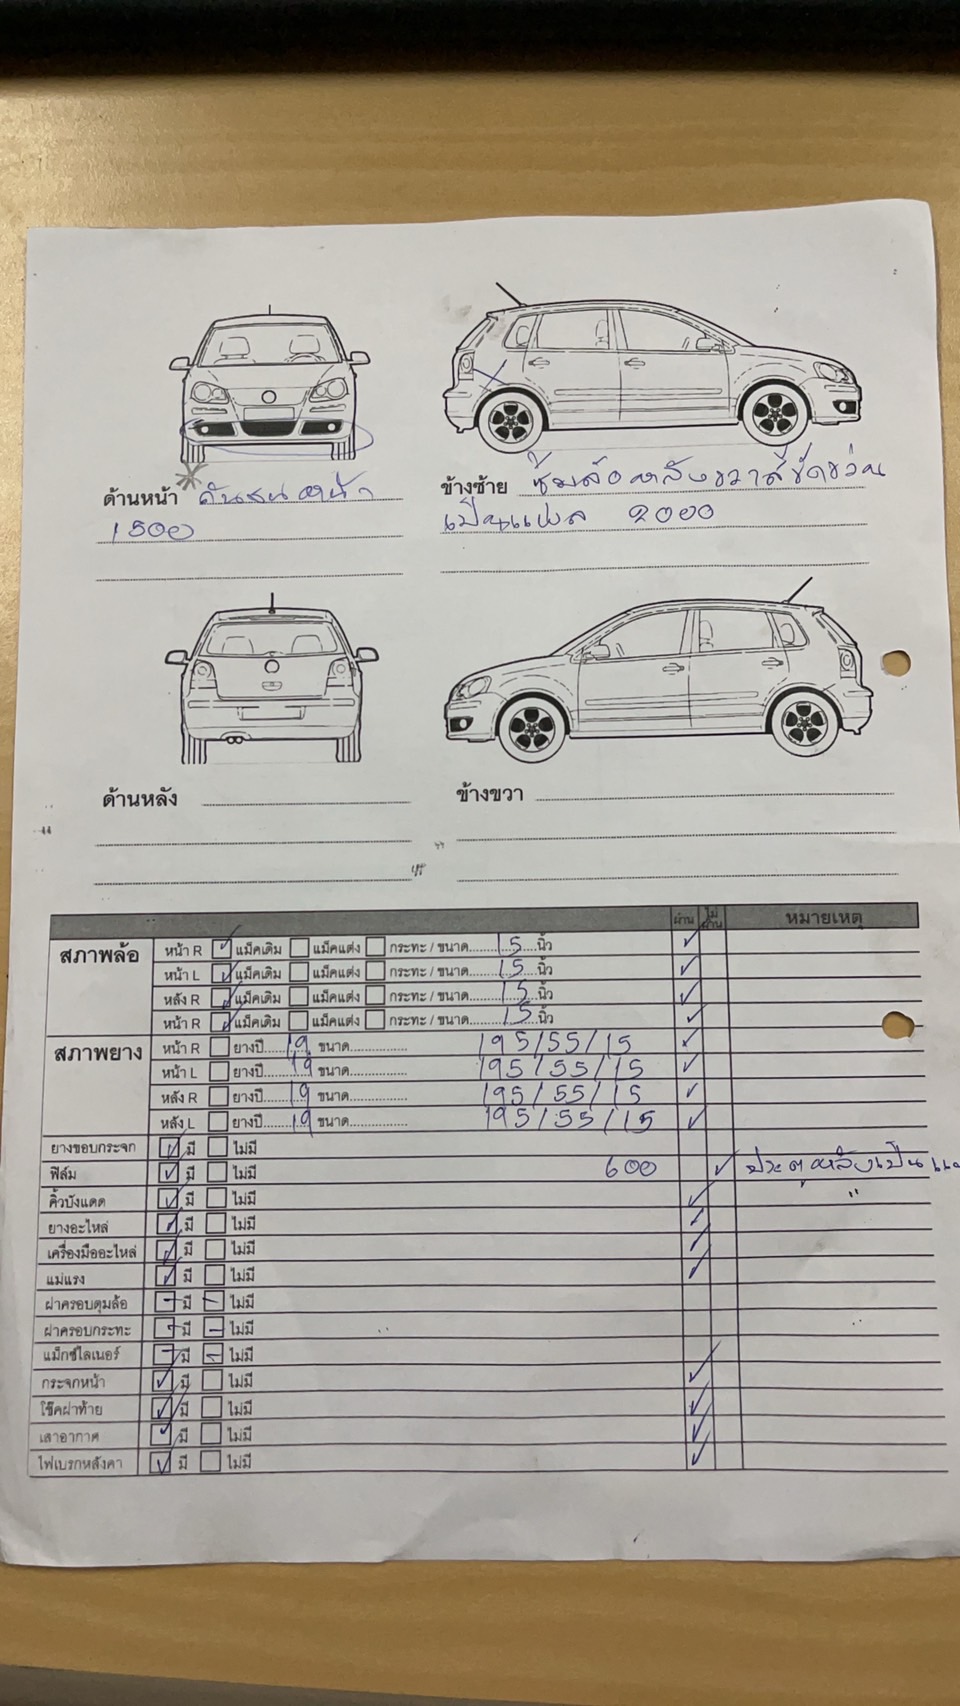 ด้านหน้า กันชนหน้า
1500
ข้างซ้าย ซุ้มล้อหลังขวาสีขัดขว่น
เป็นแผล 2000
ด้านหลัง
ข้างขวา
ผ่าน ไม่ผ่าน หมายเหตุ
สภาพล้อ หน้า R แม็คเดิม แม็คแต่ง กระทะ / ขนาด 15 นิ้ว
หน้า L แม็คเดิม แม็คแต่ง กระทะ / ขนาด 15 นิ้ว
หลัง R แม็คเดิม แม็คแต่ง กระทะ / ขนาด 15 นิ้ว
หน้า R แม็คเดิม แม็คแต่ง กระทะ / ขนาด 15 นิ้ว
สภาพยาง หน้า R ยางปี 19 ขนาด 195/55/15
หน้า L ยางปี 19 ขนาด 195/55/15
หลัง R ยางปี 19 ขนาด 195/55/15
หลัง L ยางปี 19 ขนาด 195/55/15
ยางขอบกระจก มี ไม่มี
ฟิล์ม มี ไม่มี 600 ประตูหลังเป็น
คิ้วบังแดด มี ไม่มี "
ยางอะไหล่ มี ไม่มี
เครื่องมืออะไหล่ มี ไม่มี
แม่แรง มี ไม่มี
ฝาครอบดุมล้อ มี ไม่มี
ฝาครอบกระทะ มี ไม่มี
แม็กซ์ไลเนอร์ มี ไม่มี
กระจกหน้า มี ไม่มี
โช๊คฝาท้าย มี ไม่มี
เสาอากาศ มี ไม่มี
ไฟเบรกหลังคา มี ไม่มี